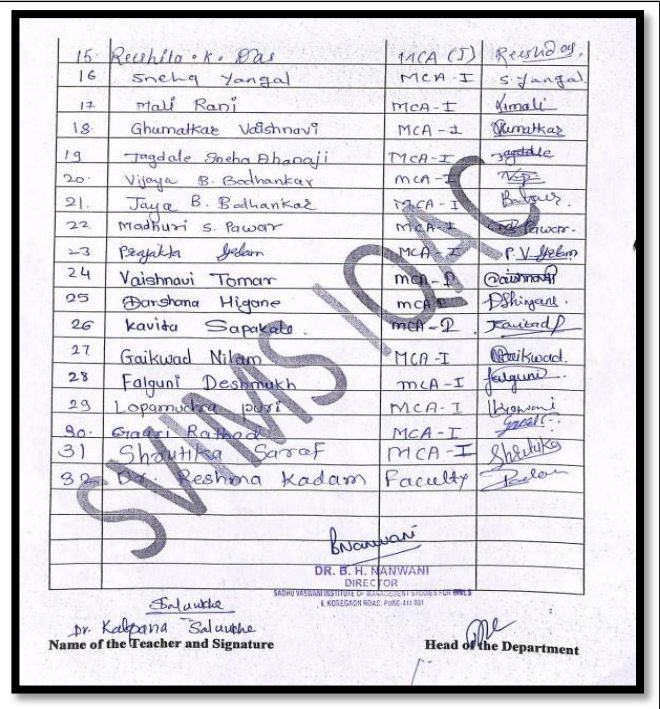 15. Reeshita . K. Das MCA (I)
16 Sneha Yangal MCA-I S. Yangal
17 Mali Rani MCA-I Rmali
18. Ghumatkar Vaishnavi MCA-I Ghumatkar
19 Jagdale Sneha Dhanaji MCA-I Jagdale
20. Vijaya B. Bodhankar MCA-I
21. Jaya B. Bodhankar MCA-I
22 Madhuri S. Pawar MCA-I Pawar.
23 Prajakta MCA-I P. V.
24 Vaishnavi Tomar MCA- Vaishnavi
25 Darshana Higane MCA
26 Kavita Sapakale. MCA-
27 Gaikwad Nilam MCA-I Gaikwad.
28 Falguni Deshmukh MCA-I falguni
29 Lopamudra puri MCA-I
30. Gauri Rathod MCA-I
31 Shrutika Saraf MCA-I Shrutika
32 Dr. Reshma Kadam Faculty
SVIMS IQAC
BNanwani
DR. B. H. NANWANI
DIRECTOR
SADHU VASWANI INSTITUTE OF MANAGEMENT STUDIES FOR GIRLS
6, KOREGAON ROAD, PUNE-411 001
Salunkhe
Dr. Kalpana Salunkhe
Name of the Teacher and Signature Head of the Department